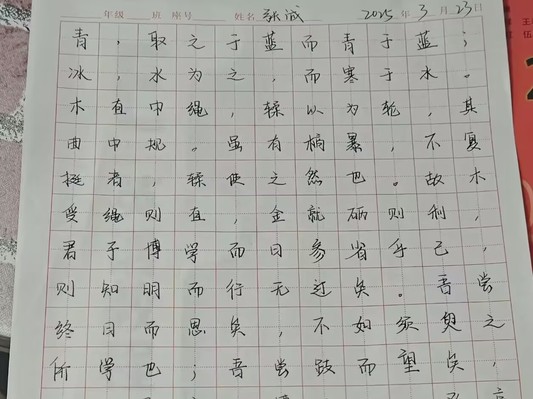 年级 班 座号 姓名 张诚 2025年3月23日
青，取之于蓝而青于蓝；
冰，水为之，而寒于水。
木直中绳，𫐓以为轮，其
曲中规。虽有槁暴，不复
挺者，𫐓使之然也。故木
受绳则直，金就砺则利，
君子博学而日参省乎己，
则知明而行无过矣。吾尝
终日而思矣，不如须臾之
所学也；吾尝跂而望矣，